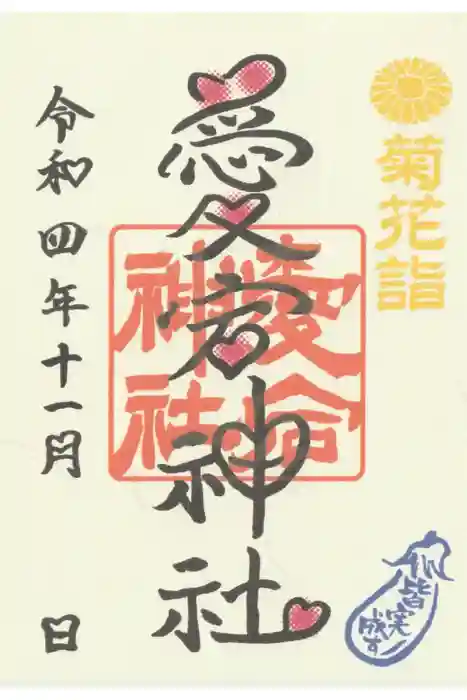 菊花詣
愛宕神社
愛宕神社
令和四年十一月 日
皆実成す